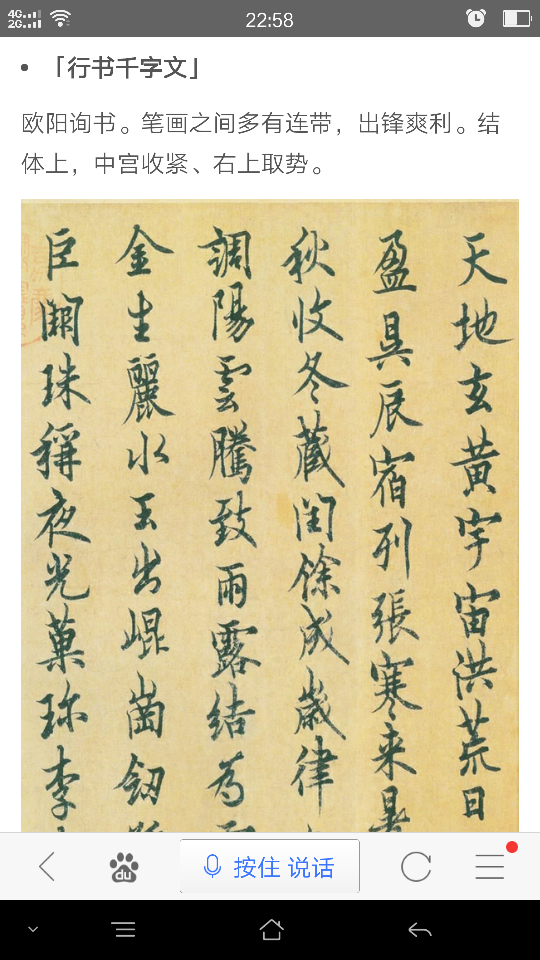 4G
2G
22:58
• 「行书千字文」
欧阳询书。笔画之间多有连带，出锋爽利。结
体上，中宫收紧、右上取势。
天地玄黄宇宙洪荒日
盈昃辰宿列張寒来暑
秋收冬藏閏餘成歲律
調陽雲騰致雨露結為
金生麗水玉出崐崗釰
巨闕珠稱夜光菓珎李
du
按住 说话